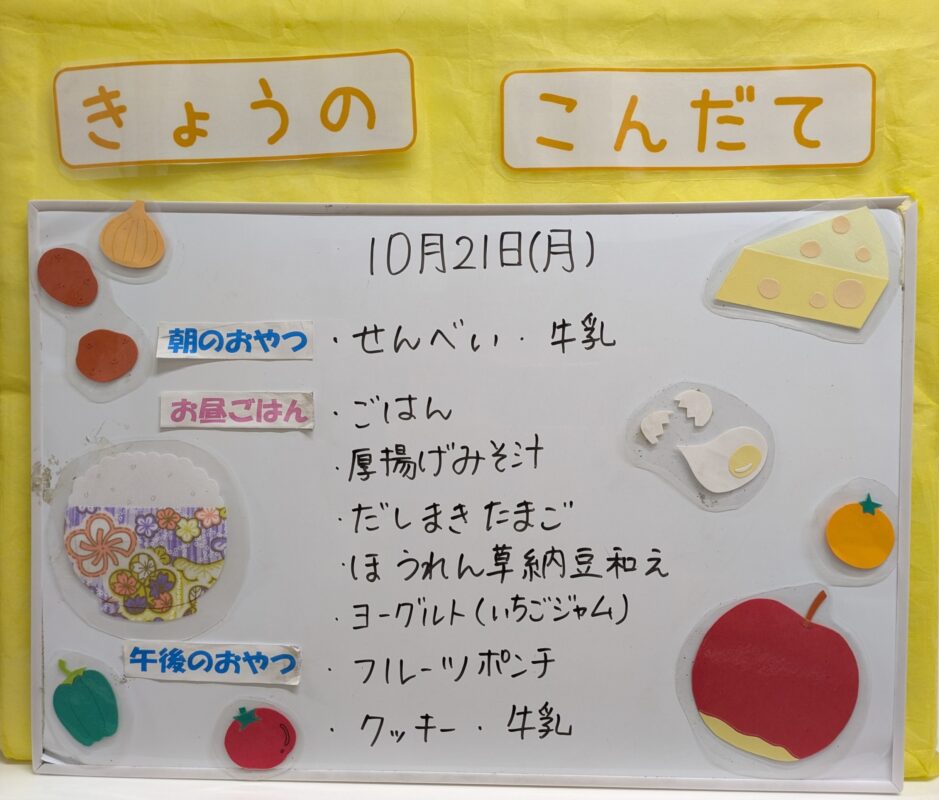 きょうの こんだて
10月21日(月)
朝のおやつ ・せんべい・牛乳
お昼ごはん ・ごはん
・厚揚げみそ汁
・だしまきたまご
・ほうれん草納豆和え
・ヨーグルト(いちごジャム)
午後のおやつ ・フルーツポンチ
・クッキー・牛乳